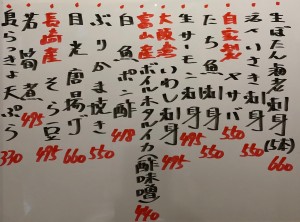 生ぼたん海老刺身(5本) 660
活〆いさき刺身 550
自家製〆サバ 550
たち魚刺身 550
生サーモン刺身 495
大阪産いわし刺身 495
富山産ボイルホタルイカ(酢味噌) 440
白魚ポン酢 418
ぶりかま焼き 550
目光唐揚げ 660
長崎産そら豆 495
若筍煮 495
長らっきょ天ぷら 330